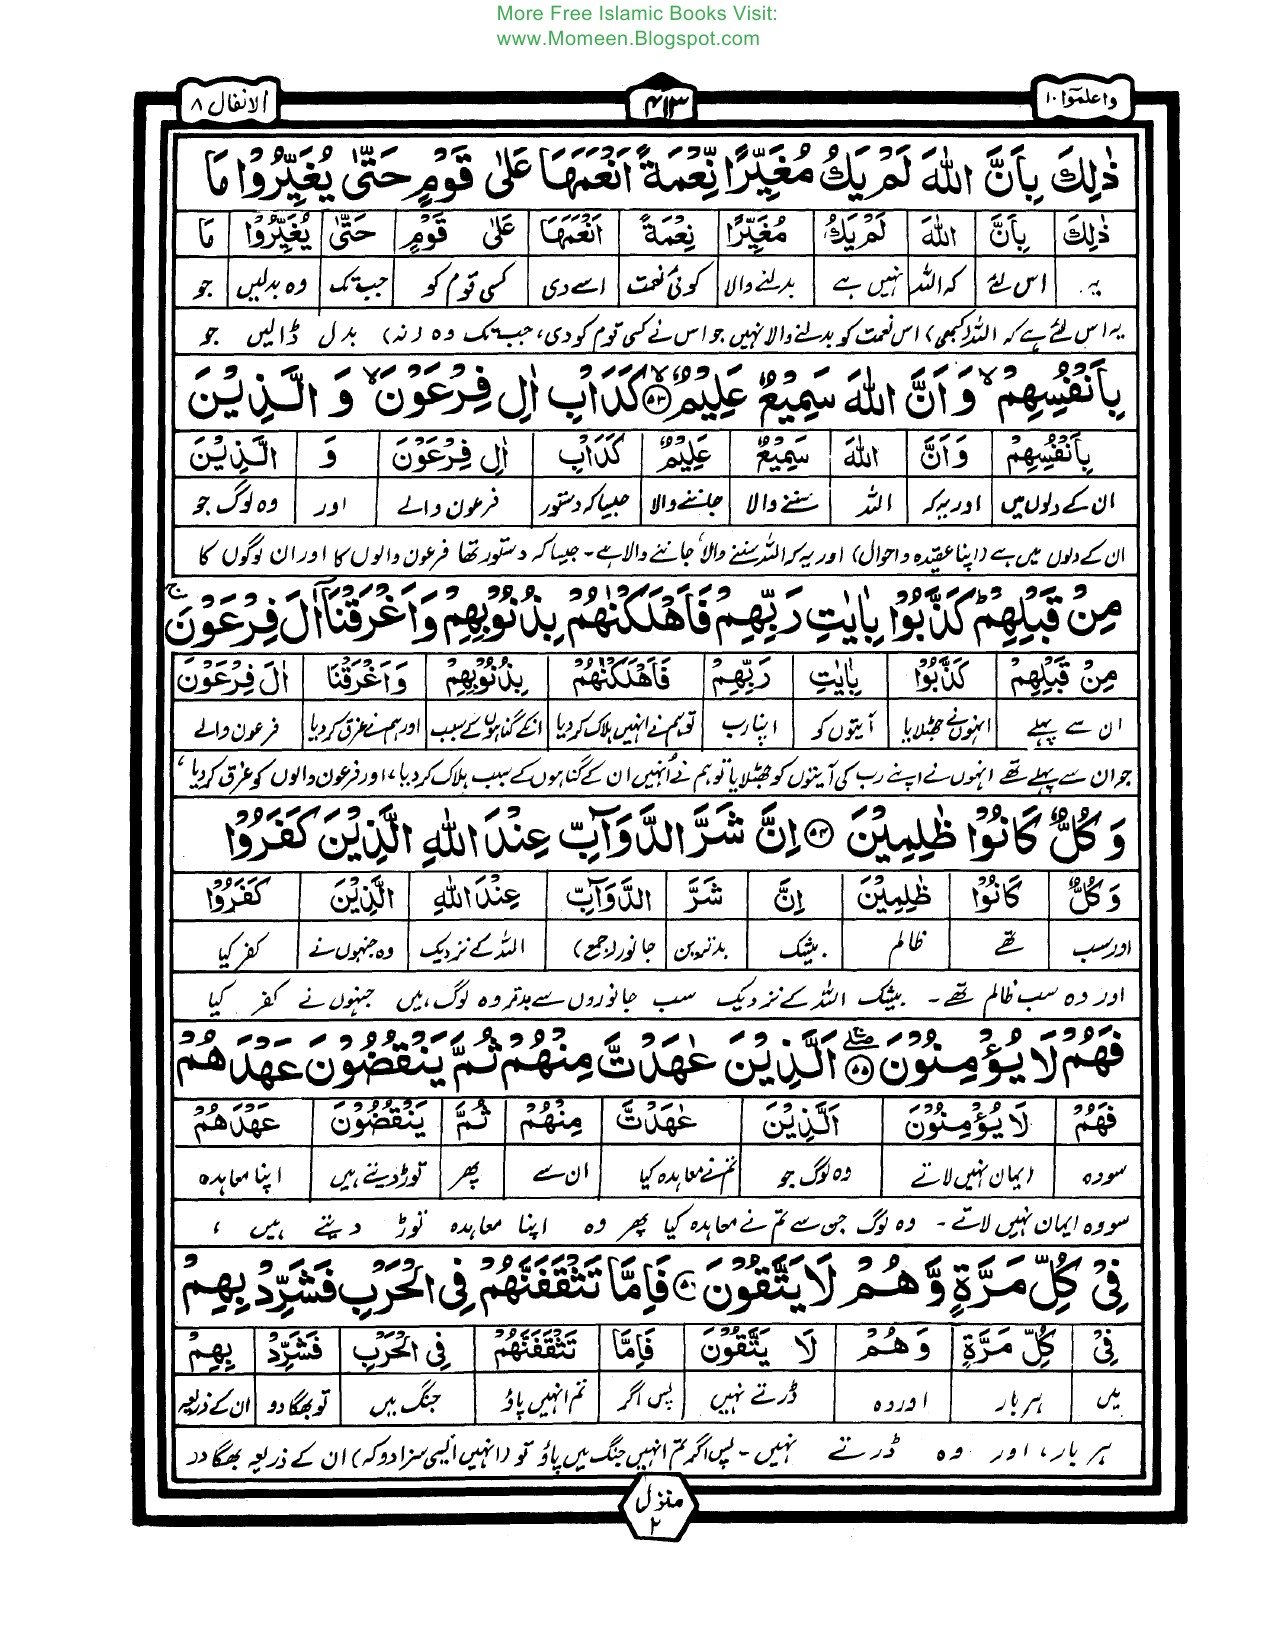 More Free Islamic Books Visit:
www.Momeen.Blogspot.com
واعلموٓا ۱۰ ۴۱۳ الانفال ۸
ذٰلِكَ بِاَنَّ اللّٰهَ لَمْ يَكُ مُغَيِّرًا نِّعْمَةً اَنْعَمَهَا عَلٰى قَوْمٍ حَتّٰى يُغَيِّرُوْا مَا
ذٰلِكَ بِاَنَّ اللّٰهَ لَمْ يَكُ مُغَيِّرًا نِعْمَةً اَنْعَمَهَا عَلٰى قَوْمٍ حَتّٰى يُغَيِّرُوْا مَا
یہ اس لئے کہ اللہ نہیں ہے بدلنے والا کوئی نعمت اسے دی کسی قوم کو جب تک وہ بدلیں جو
یہ اس لئے ہے کہ اللہ (کبھی) اس نعمت کو بدلنے والا نہیں جو اس نے کسی قوم کو دی، جب تک وہ (نہ) بدل ڈالیں جو
بِاَنْفُسِهِمْ ۙ وَ اَنَّ اللّٰهَ سَمِيْعٌ عَلِيْمٌ ۙ‏﴿۵۳﴾ كَدَاْبِ اٰلِ فِرْعَوْنَ ۙ وَ الَّذِيْنَ
بِاَنْفُسِهِمْ وَ اَنَّ اللّٰهَ سَمِيْعٌ عَلِيْمٌ كَدَاْبِ اٰلِ فِرْعَوْنَ وَ الَّذِيْنَ
ان کے دلوں میں اور یہ کہ اللہ سننے والا جاننے والا جیسا کہ دستور فرعون والے اور وہ لوگ جو
ان کے دلوں میں ہے (اپنا عقیدہ و احوال) اور یہ کہ اللہ سننے والا، جاننے والا ہے۔ جیسا کہ دستور تھا فرعون والوں کا اور ان لوگوں کا
مِنْ قَبْلِهِمْ ؕ كَذَّبُوْا بِاٰيٰتِ رَبِّهِمْ فَاَهْلَكْنٰهُمْ بِذُنُوْبِهِمْ وَاَغْرَقْنَاۤ اٰلَ فِرْعَوْنَ ۚ
مِنْ قَبْلِهِمْ كَذَّبُوْا بِاٰيٰتِ رَبِّهِمْ فَاَهْلَكْنٰهُمْ بِذُنُوْبِهِمْ وَاَغْرَقْنَا اٰلَ فِرْعَوْنَ
ان سے پہلے انہوں نے جھٹلایا آیتوں کو اپنا رب تو ہم نے انہیں ہلاک کردیا انکے گناہوں کے سبب اور ہم نے غرق کردیا فرعون والے
جو ان سے پہلے تھے انہوں نے اپنے رب کی آیتوں کو جھٹلایا تو ہم نے اُنہیں ان کے گناہوں کے سبب ہلاک کردیا، اور فرعون والوں کو غرق کردیا،
وَ كُلٌّ كَانُوْا ظٰلِمِيْنَ ‏﴿۵۴﴾ اِنَّ شَرَّ الدَّوَآبِّ عِنْدَ اللّٰهِ الَّذِيْنَ كَفَرُوْا
وَ كُلٌّ كَانُوْا ظٰلِمِيْنَ اِنَّ شَرَّ الدَّوَآبِّ عِنْدَ اللّٰهِ الَّذِيْنَ كَفَرُوْا
اور سب تھے ظالم بیشک بدترین جانور (جمع) اللہ کے نزدیک وہ جنہوں نے کفر کیا
اور وہ سب ظالم تھے۔ بیشک اللہ کے نزدیک سب جانوروں سے بدتر وہ لوگ ہیں جنہوں نے کفر کیا
فَهُمْ لَا يُؤْمِنُوْنَ ‏﴿۵۵﴾ اَلَّذِيْنَ عٰهَدْتَّ مِنْهُمْ ثُمَّ يَنْقُضُوْنَ عَهْدَهُمْ
فَهُمْ لَا يُؤْمِنُوْنَ اَلَّذِيْنَ عٰهَدْتَّ مِنْهُمْ ثُمَّ يَنْقُضُوْنَ عَهْدَهُمْ
سو وہ ایمان نہیں لاتے وہ لوگ جو تم نے معاہدہ کیا ان سے پھر توڑ دیتے ہیں اپنا معاہدہ
سو وہ ایمان نہیں لاتے۔ وہ لوگ جن سے تم نے معاہدہ کیا پھر وہ اپنا معاہدہ توڑ دیتے ہیں،
فِيْ كُلِّ مَرَّةٍ وَّ هُمْ لَا يَتَّقُوْنَ ‏﴿۵۶﴾ فَاِمَّا تَثْقَفَنَّهُمْ فِي الْحَرْبِ فَشَرِّدْ بِهِمْ
فِيْ كُلِّ مَرَّةٍ وَ هُمْ لَا يَتَّقُوْنَ فَاِمَّا تَثْقَفَنَّهُمْ فِي الْحَرْبِ فَشَرِّدْ بِهِمْ
میں ہر بار اور وہ ڈرتے نہیں پس اگر تم انہیں پاؤ جنگ میں تو بھگا دو ان کے ذریعہ
ہر بار، اور وہ ڈرتے نہیں۔ پس اگر تم انہیں جنگ میں پاؤ تو (انہیں ایسی سزا دو کہ) ان کے ذریعہ بھگا دو
منزل ۲